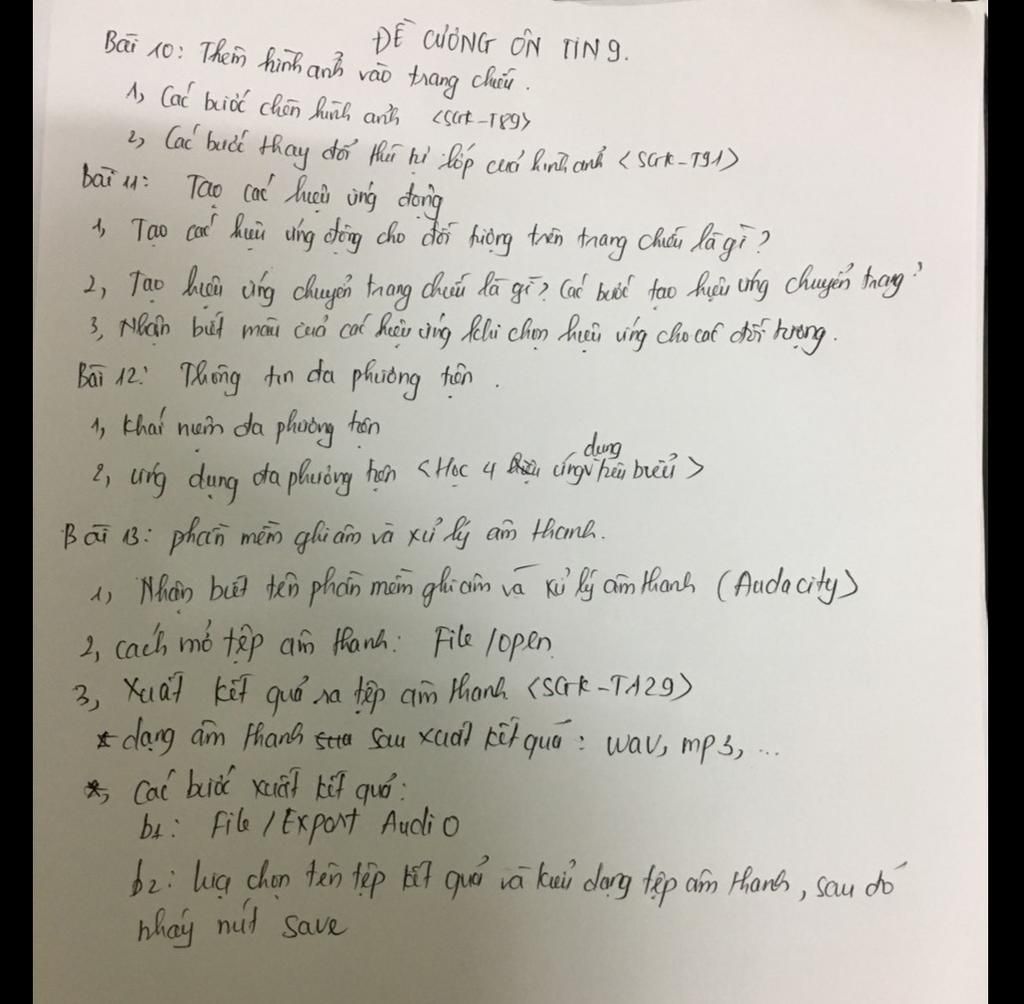 ĐỀ CƯƠNG ÔN TIN 9.
Bài 10: Thêm hình ảnh vào trang chiếu.
1, Các bước chèn hình ảnh <SGK-T89>
2, Các bước thay đổi thứ tự lớp của hình ảnh <SGK-T91>
Bài 11: Tạo các hiệu ứng động
1, Tạo các hiệu ứng động cho đối tượng trên trang chiếu là gì?
2, Tạo hiệu ứng chuyển trang chiếu là gì? Các bước tạo hiệu ứng chuyển trang?
3, Nhận biết màu của các hiệu ứng khi chọn hiệu ứng cho các đối tượng.
Bài 12: Thông tin đa phương tiện.
1, Khái niệm đa phương tiện
2, ứng dụng đa phương tiện <Học 4 ứng dụng tiêu biểu>
Bài 13: phần mềm ghi âm và xử lý âm thanh.
1, Nhận biết tên phần mềm ghi âm và xử lý âm thanh (Audacity>
2, cách mở tệp âm thanh: File/open
3, Xuất kết quả ra tệp âm thanh <SGK-T129>
* dạng âm thanh sau xuất kết quả: wav, mp3, ...
*, Các bước xuất kết quả:
b1: File/Export Audio
b2: lựa chọn tên tệp kết quả và kiểu dạng tệp âm thanh, sau đó
nháy nút save